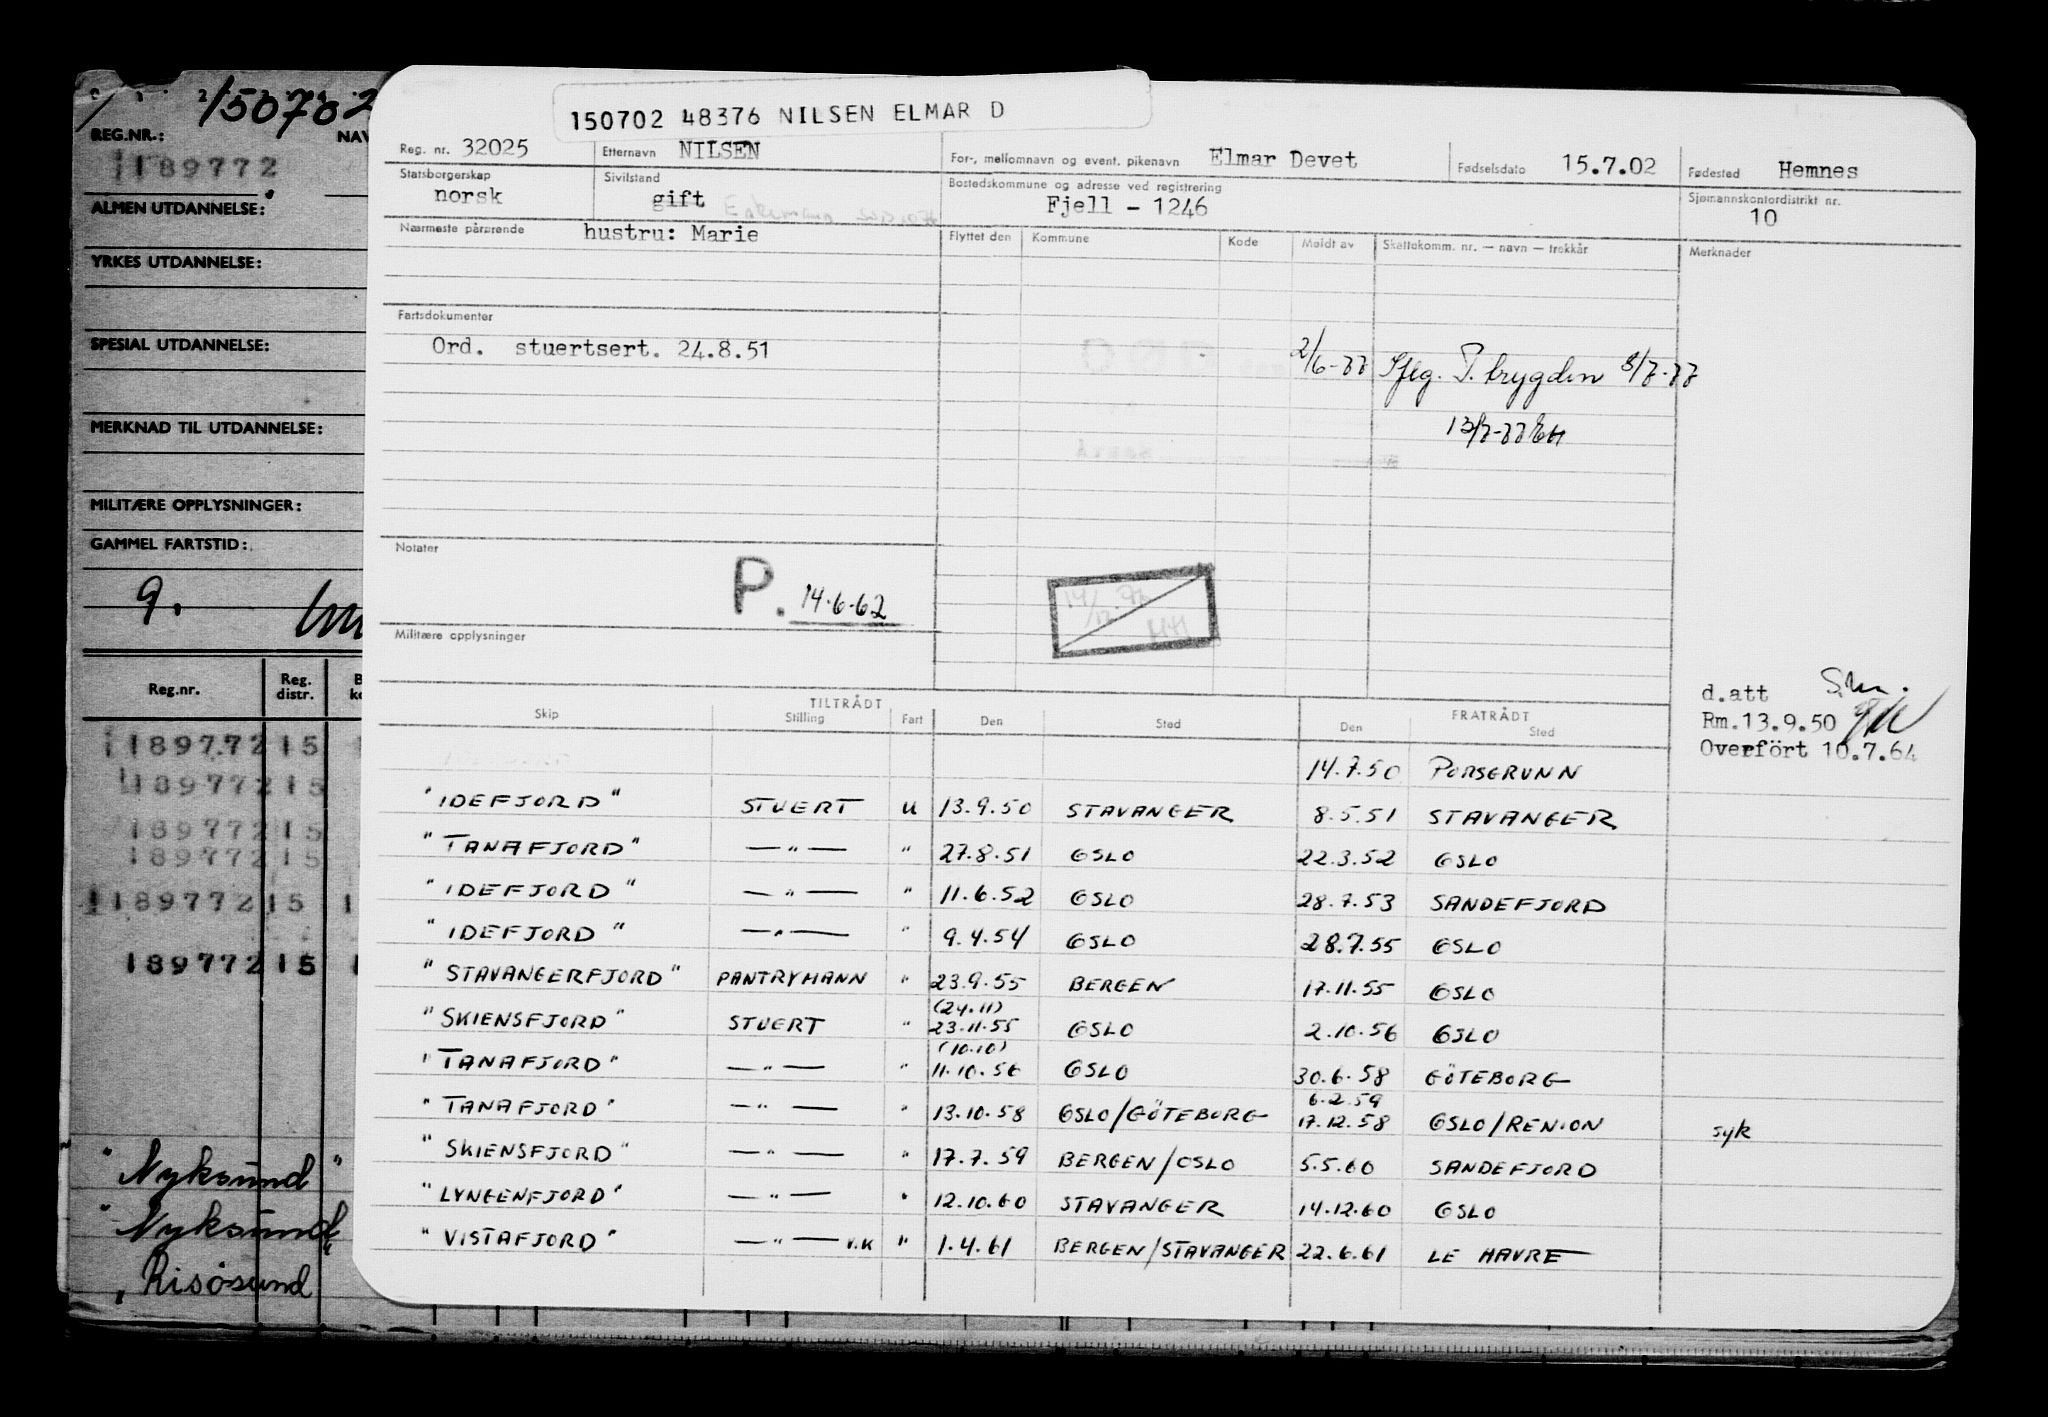 150702
REG.NR.: NAV
189772
ALMEN UTDANNELSE:
YRKES UTDANNELSE:
SPESIAL UTDANNELSE:
MERKNAD TIL UTDANNELSE:
MILITÆRE OPPLYSNINGER:
GAMMEL FARTSTID:
9.
Reg.nr. Reg. distr.
189772 15
189772 15
189772 15
189772 15
189772 15 1
189772 15 1
"Nyksund"
"Nyksund"
"Risösund
150702 48376 NILSEN ELMAR D
Reg. nr. 32025 Etternavn NILSEN For-, mellomnavn og event. pikenavn Elmar Devet Fødselsdato 15.7.02 Fødested Hemnes
Statsborgerskap norsk Sivilstand gift Enkemann Bostedskommune og adresse ved registrering Fjell - 1246 Sjømannskontordistrikt nr. 10
Nærmeste pårørende hustru: Marie Flyttet den Kommune Kode Meldt av Skattekomm. nr. — navn — trekkår Merknader
Fartsdokumenter
Ord. stuertsert. 24.8.51
2/6-77 Sfleg. T. brygden 8/7-77
13/7-77 EH
Notater
P. 14.6.62
Militære opplysninger
d.att
Rm.13.9.50
Overfört 10.7.64
TILTRÅDT FRATRÅDT
Skip Stilling Fart Den Sted Den Sted
14.7.50 PORSGRUNN
"IDEFJORD" STUERT U 13.9.50 STAVANGER 8.5.51 STAVANGER
"TANAFJORD" —"— " 27.8.51 OSLO 22.3.52 OSLO
"IDEFJORD" —"— " 11.6.52 OSLO 28.7.53 SANDEFJORD
"IDEFJORD" —"— " 9.4.54 OSLO 28.7.55 OSLO
"STAVANGERFJORD" PANTRYMANN " 23.9.55 BERGEN 17.11.55 OSLO
(24.11)
"SKIENSFJORD" STUERT " 23.11.55 OSLO 2.10.56 OSLO
(10.10)
"TANAFJORD" —"— " 11.10.56 OSLO 30.6.58 GÖTEBORG
6.2.59
"TANAFJORD" —"— " 13.10.58 OSLO/GÖTEBORG 17.12.58 OSLO/RENION syk
"SKIENSFJORD" —"— " 17.7.59 BERGEN/OSLO 5.5.60 SANDEFJORD
"LYNGENFJORD" —"— " 12.10.60 STAVANGER 14.12.60 OSLO
"VISTAFJORD" —"— V.K " 1.4.61 BERGEN/STAVANGER 22.6.61 LE HAVRE